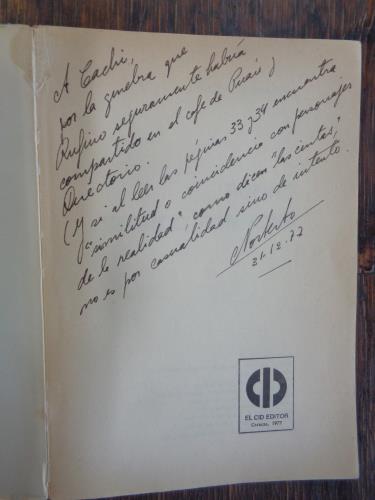 A Cachi,
por la ginebra que
Rufino seguramente habría
compartido en el café de Pucará y
Directorio.
(Y si al leer las páginas 33 y 34 encuentra
"similitud o coincidencia con personajes
de la realidad" como dicen "las cintas",
no es por casualidad sino de intento.
Norberto
21.12.77
EL CID EDITOR
Caracas, 1977